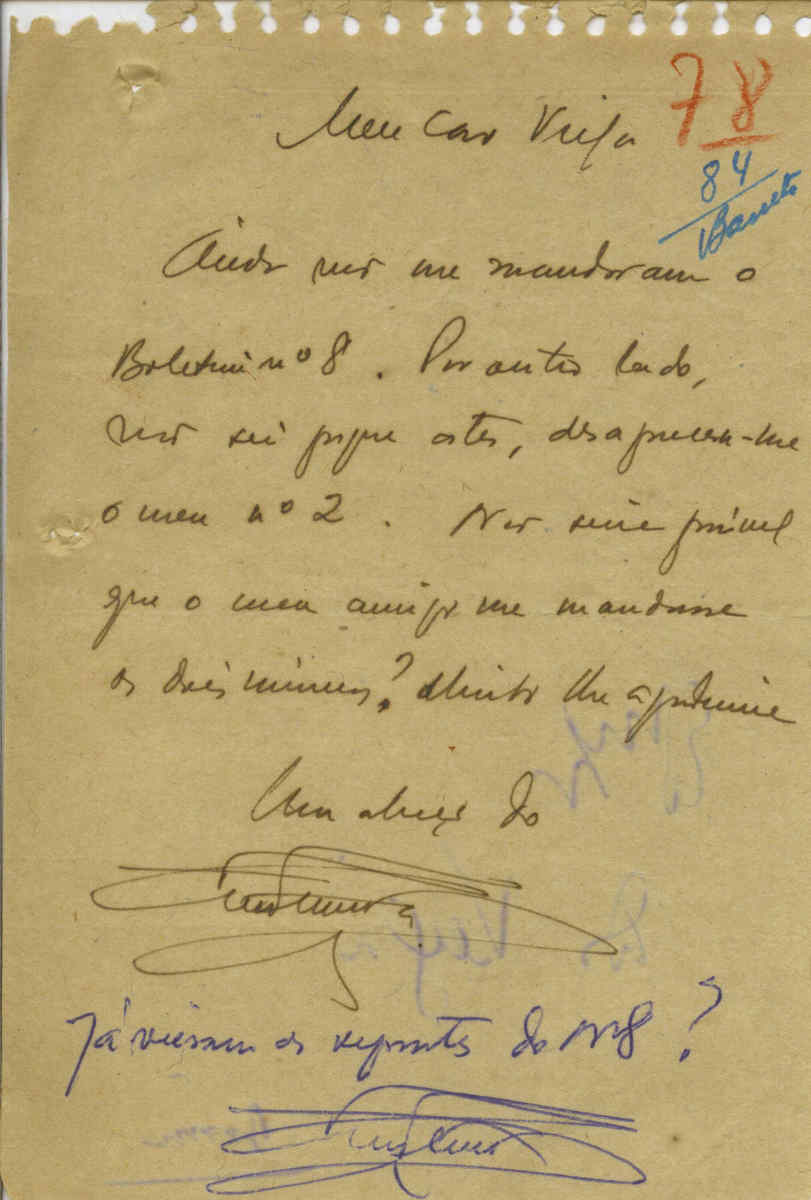 Meu caro Veiga
78
84
Barreto
Ainda não me mandaram o
Boletim nº 8. Por outro lado,
não sei porque artes, desapareceu-me
o meu nº 2. Não seria possivel
que o meu amigo me mandasse
os dois números? Muito lhe agradecia
Um abraço do
Já vieram os separatas do Nº 8?